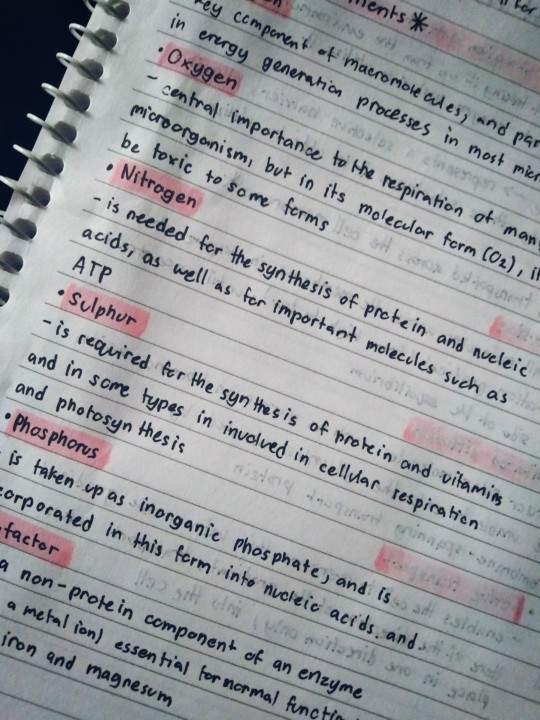 ments *
key component of macromolecules, and
in energy generation processes in most
• Oxygen
- central importance to the respiration of
microorganism, but in its molecular form (O₂),
be toxic to some forms
• Nitrogen
- is needed for the synthesis of protein and nucleic
acids, as well as for important molecules such as
ATP
• Sulphur
- is required for the synthesis of protein and vitamins
and in some types in involved in cellular respiration
and photosynthesis
• Phosphorus
is taken up as inorganic phosphate, and is
corporated in this form into nucleic acids and
factor
a non-protein component of an enzyme
a metal ion) essential for normal
iron and magnesum